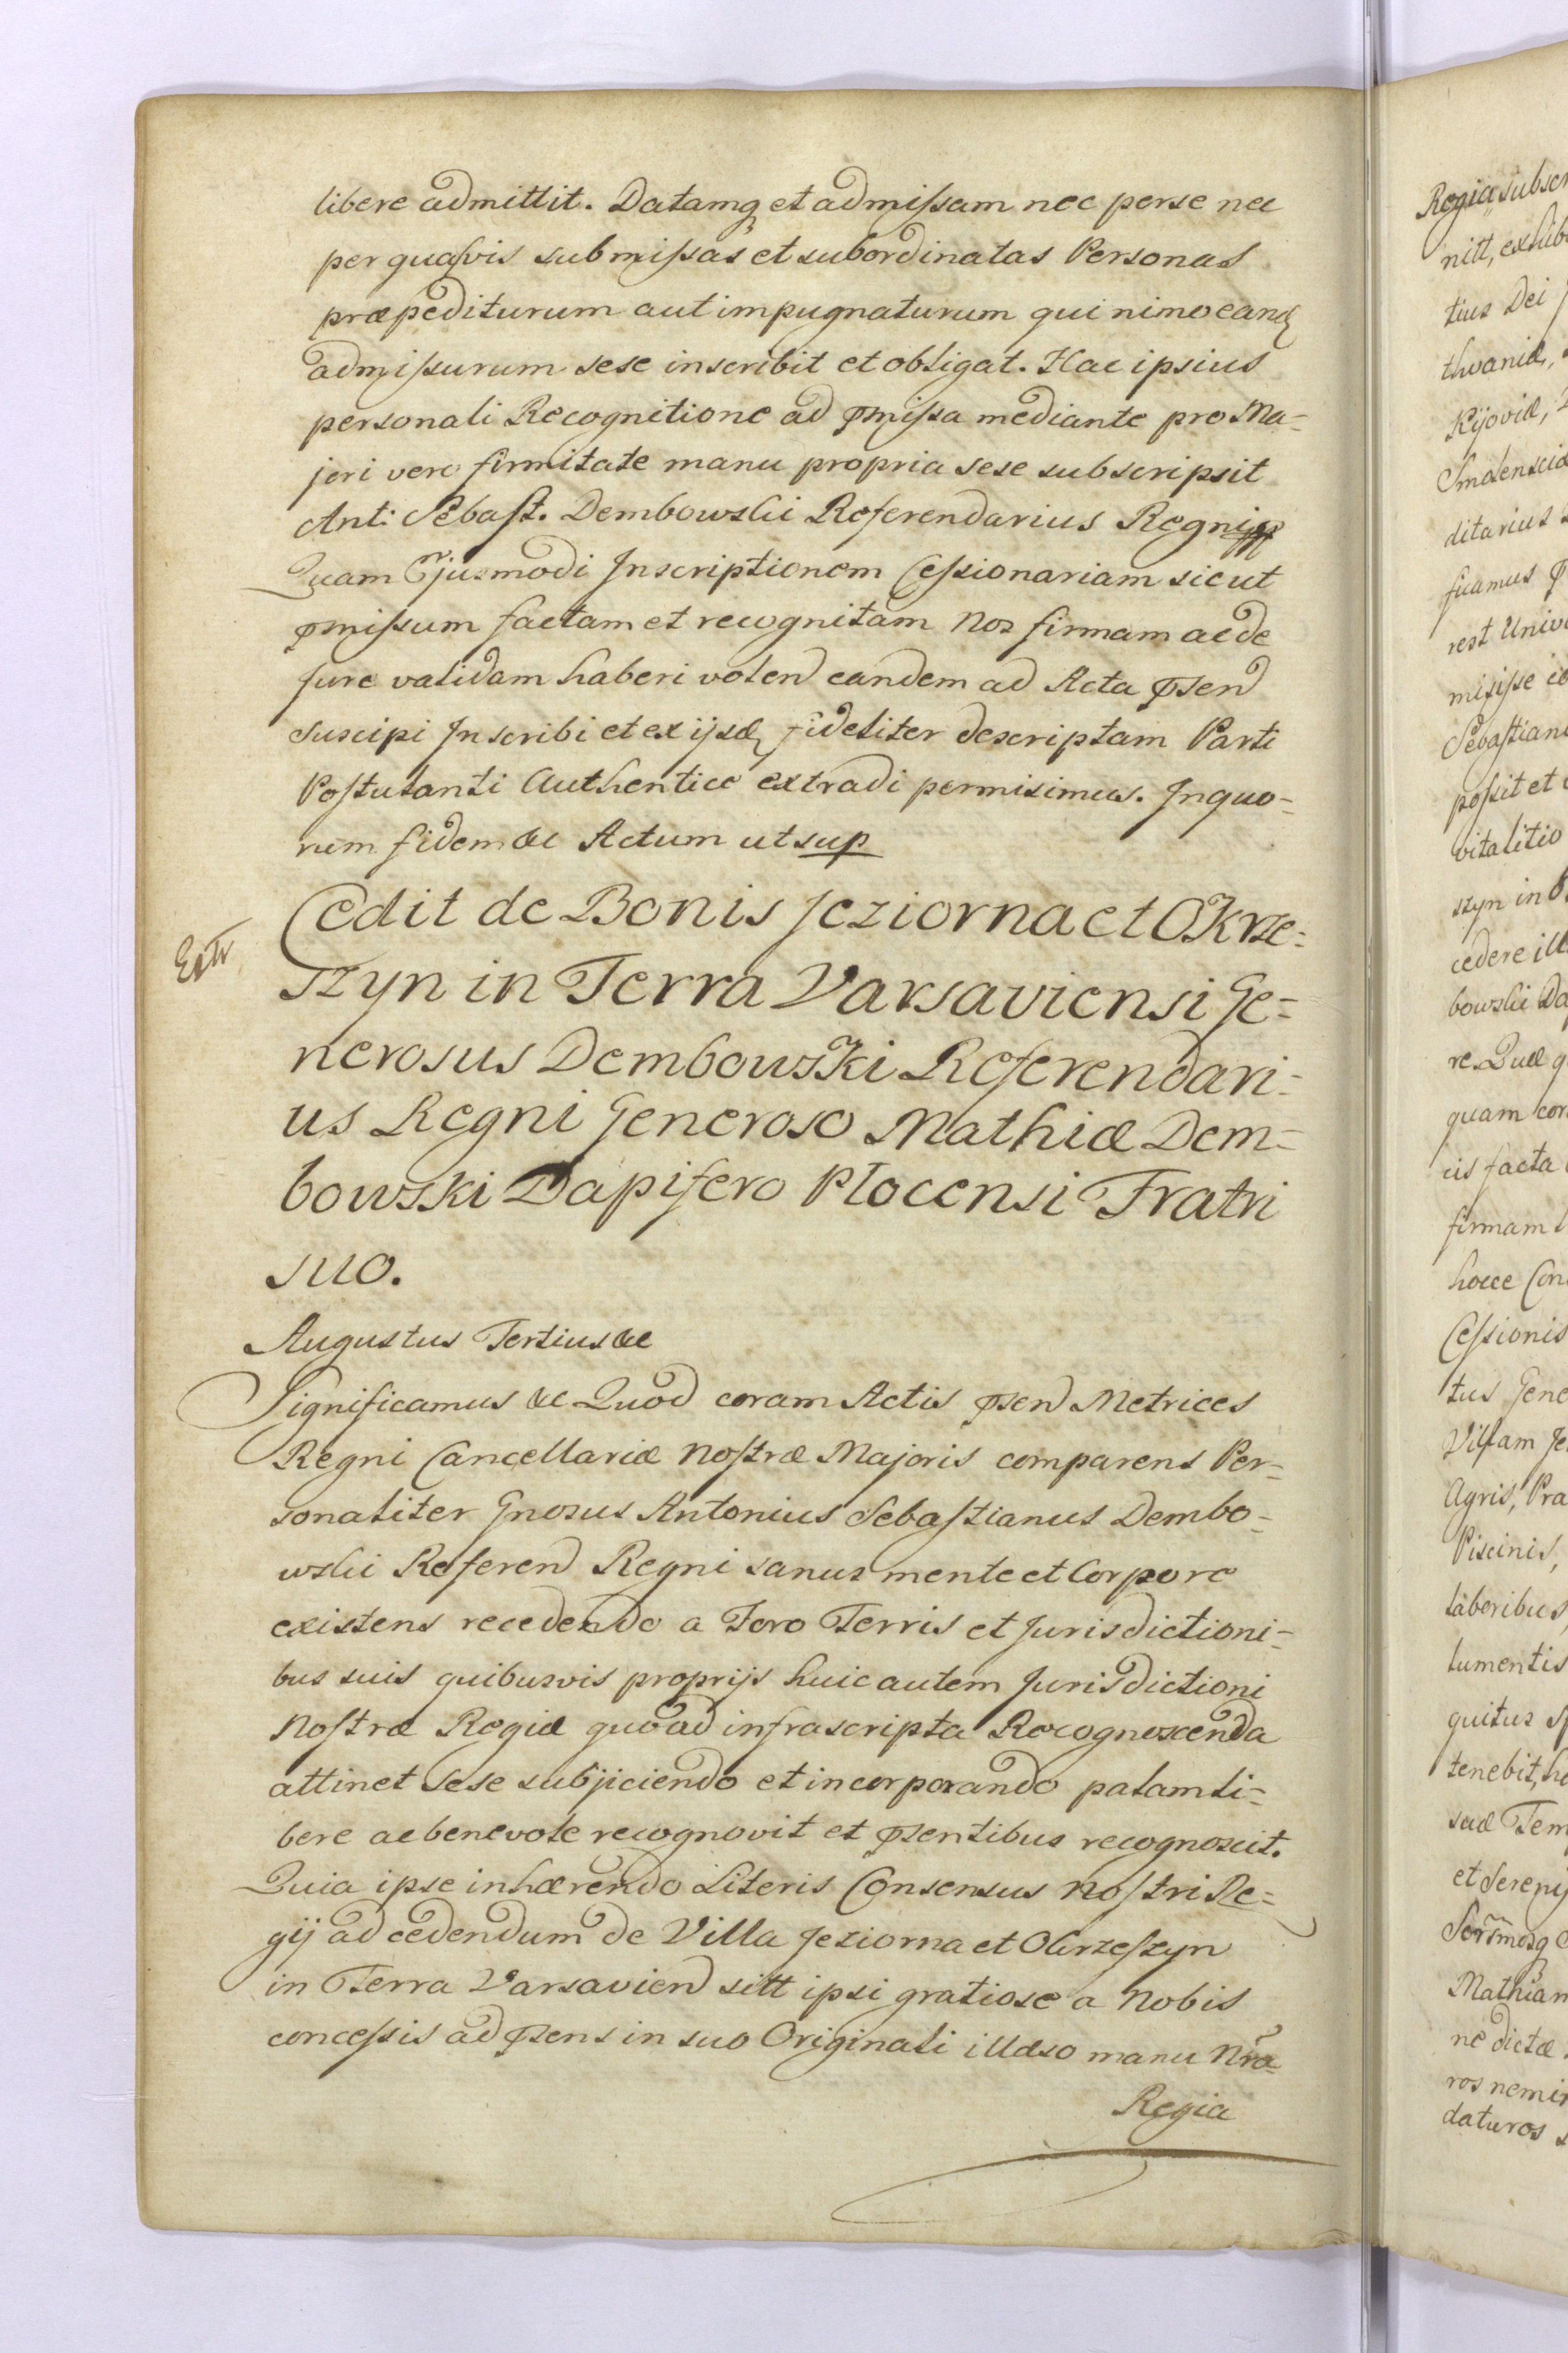 libere admittit. Datamq et admiſsam nec perse nec
per quaſvis submiſsas et subordinatas Personas
præpediturum aut impugnaturum qui nimo eand
admiſsurum sese inscribit et obligat. Hac ipsius
personali Recognitione ad pmiſsa mediante pro Ma-
jori vero firmitate manu propria sese subscripsit
Ant: Sebaſt. Dembowski Referendarius Regni
Quam Ejusmodi Inscriptionem Ceſsionariam sicut
pmiſsum factam et recognitam Nos firmam ac de
Jure validam haberi volend eandem ad Acta psend
suscipi Inscribi et ex ijsd fideliter descriptam Parti
Poſtulanti Authentice extradi permisimus. In quo-
rum fidem &c Actum ut sup
Extr
Cedit de Bonis Jeziorna et Okrze-
szyn in Terra Varsaviensi Ge-
nerosus Dembowski Referendari-
us Regni Generoso Mathiæ Dem-
bowski Dapifero Plocensi Fratri
suo.
Augustus Tertius &c
Significamus &c Quod coram Actis psend Metrices
Regni Cancellariæ Noſtræ Majoris comparens Per-
sonaliter Gnosus Antonius Sebaſtianus Dembo-
wski Referend Regni sanus mente et Corpore
existens recedendo a Foro Terris et Jurisdictioni-
bus suis quibusvis proprijs huic autem Jurisdictioni
Noſtræ Regiæ quoad infrascripta Recognoscenda
attinet Sese subjiciendo et incorporando palam li-
bere ac benevole recognovit et psentibus recognoscit.
Quia ipse inhærendo Literis Consensus Noſtri Re-
gij ad cedendum de Villa Jeziorna et Okrzeſzyn
in Terra Varsaviend sitt ipsi gratiose a Nobis
conceſsis ad psens in suo Originali illæso manu Nra
Regia
Regia subscr
nitt, exhib
tius Dei
thvaniæ,
Kijoviæ,
Smolensciæ
ditarius
ficamus
rest Univ
misiſse
Sebaſtiano
poſsit et
vitalitio
szyn in
cedere ill
bowski Da
re. Quæ q
quam cor
iis facta
firmam
hocce Con
Ceſsionis
tus Gene
Villam Je
Agris, Pra
Piscinis,
laboribus,
lumentis
quitus
tenebit, h
suæ Tem
et Sereni
Sermosq
Mathiam
ne dictæ
ros nemin
daturos